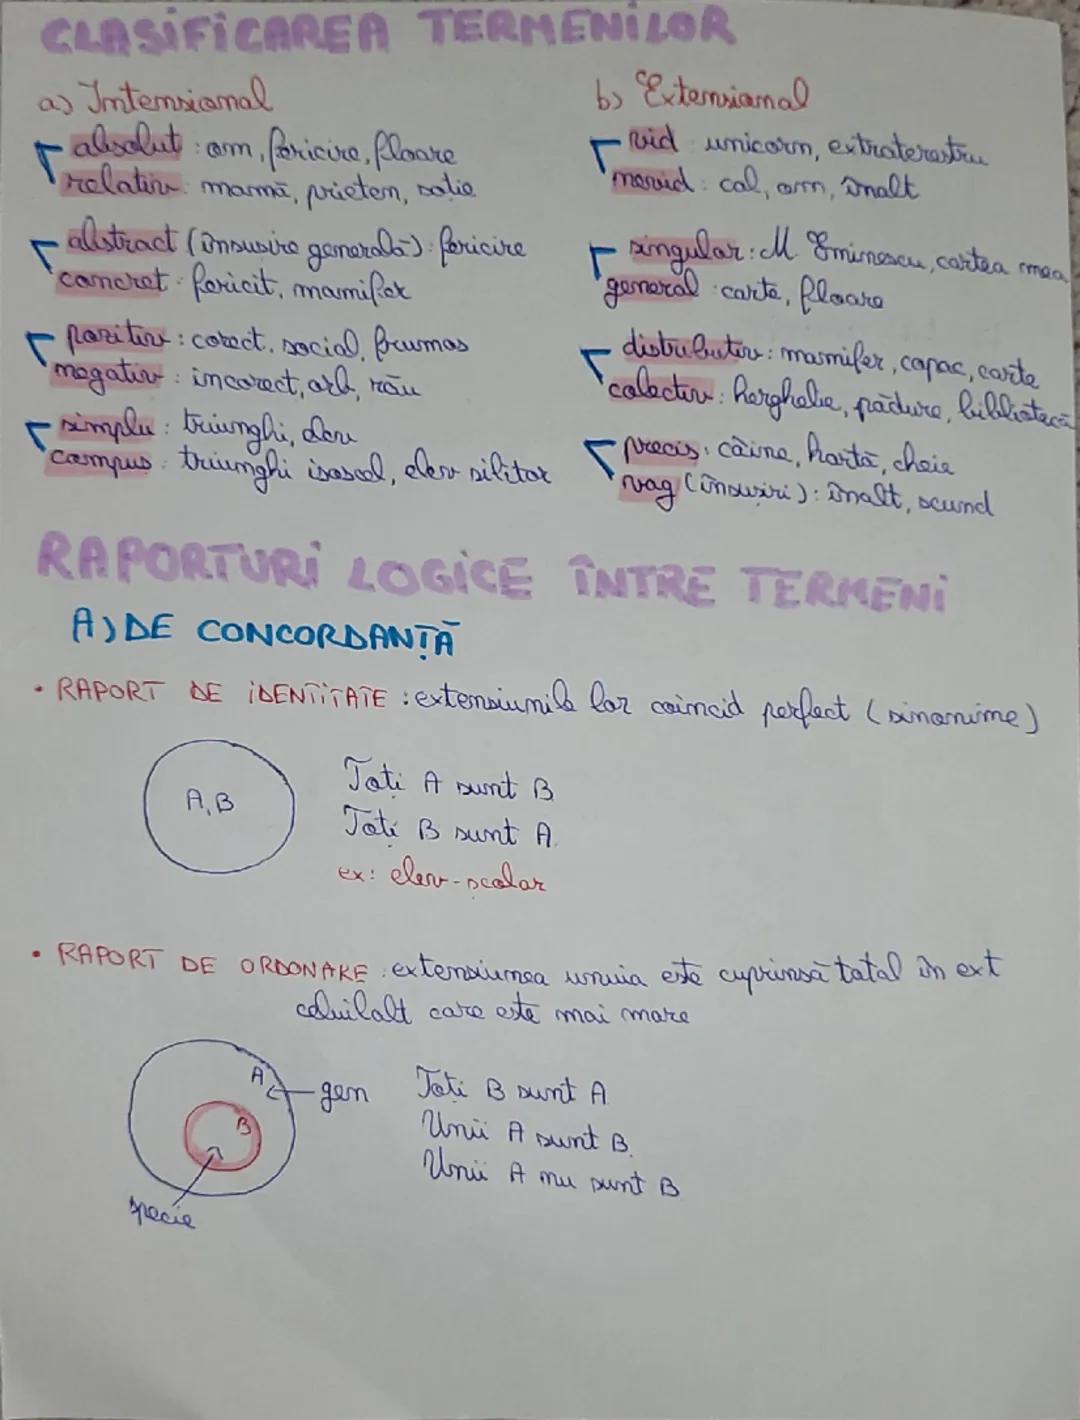 CLASIFICAREA TERMENILOR
a) Intensional
absolut : om, fericire, floare
relativ : mamă, prieten, soție
abstract (însușire generală) : fericire
concret : fericit, mamifer
pozitiv : corect, social, frumos
negativ : incorect, orb, rău
simplu : triunghi, elev
compus : triunghi isoscel, elev silitor
b) Extensional
vid : unicorn, extraterestru
nevid : cal, om, înalt
singular : M. Eminescu, cartea mea
general : carte, floare
distributiv : mamifer, copac, carte
colectiv : herghelie, pădure, bibliotecă
precis : câine, hartă, cheie
vag (însușiri) : înalt, scund
RAPORTURI LOGICE ÎNTRE TERMENI
A) DE CONCORDANȚĂ
• RAPORT DE IDENTITATE : extensiunile lor coincid perfect (sinonime)
A, B
Toți A sunt B
Toți B sunt A.
ex: elev-școlar
• RAPORT DE ORDONARE : extensiunea unuia este cuprinsă total în ext
celuilalt care este mai mare
A
gen
B
specie
Toți B sunt A
Unii A sunt B.
Unii A nu sunt B